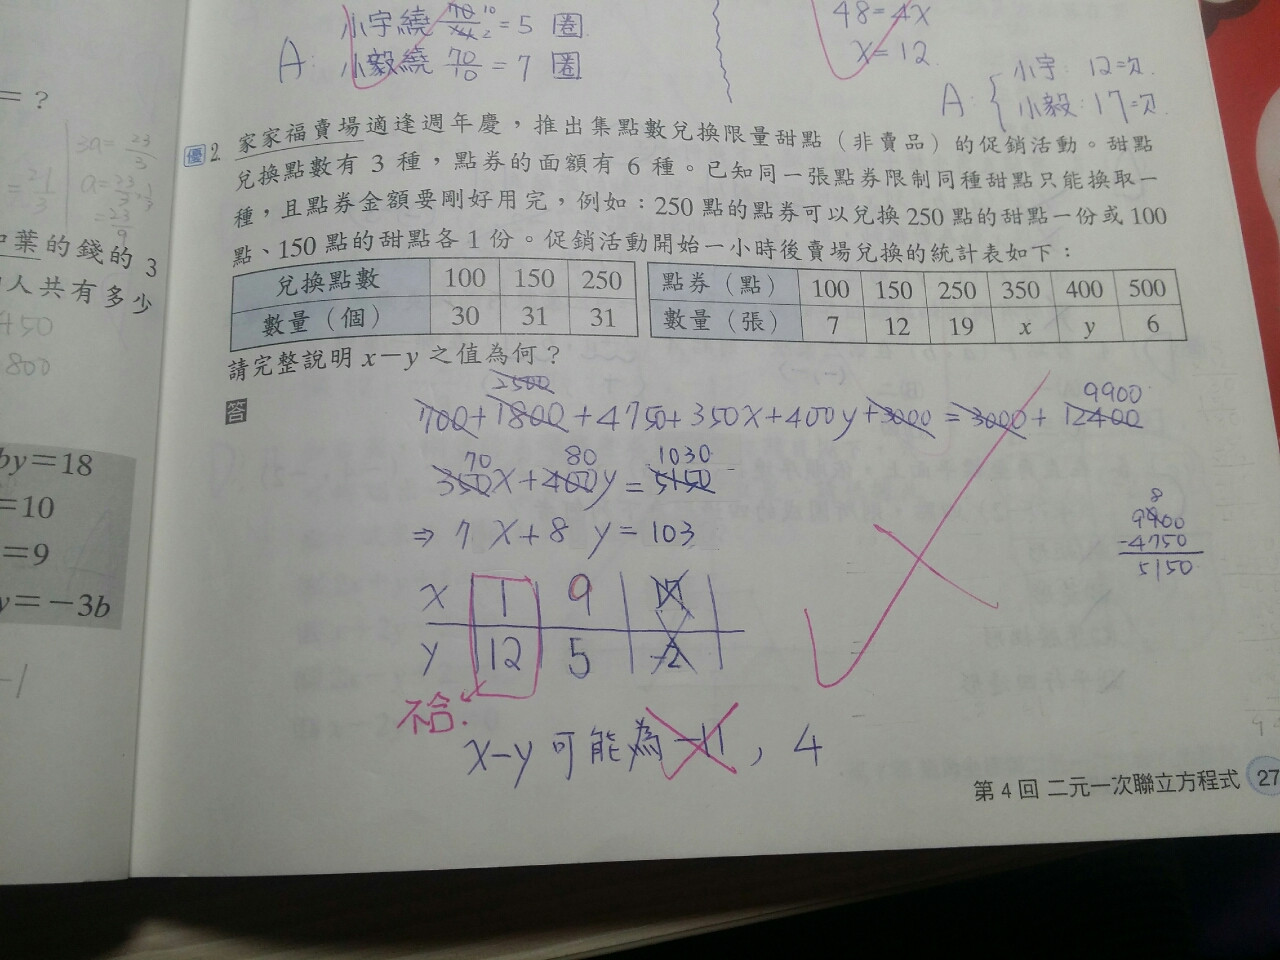 小宇繞 70/14 = 5 圈
A: 小毅繞 70/10 = 7 圈
48=4x
x=12
A: { 小宇: 12次.
小毅: 17次
=?
3a=23/3
優 2. 家家福賣場適逢週年慶，推出集點數兌換限量甜點（非賣品）的促銷活動。甜點
兌換點數有 3 種，點券的面額有 6 種。已知同一張點券限制同種甜點只能換取一
種，且點券金額要剛好用完，例如：250 點的點券可以兌換 250 點的甜點一份或 100
點、150 點的甜點各 1 份。促銷活動開始一小時後賣場兌換的統計表如下：
兌換點數 100 150 250
數量（個） 30 31 31
點券（點） 100 150 250 350 400 500
數量（張） 7 12 19 x y 6
請完整說明 x－y 之值為何？
葉的錢的 3
人共有多少
450
800
by=18
=10
=9
y=-3b
-1
答
2500
9900
700+1800+4750+350x+400y+3000=3000+12400
70 80 1030
350x+400y=5150
⇒ 7x+8y=103
8
9900
-4750
5150
x 1 9 17
y 12 5 -2
不合.
x-y 可能為 -11, 4
第 4 回 二元一次聯立方程式 27